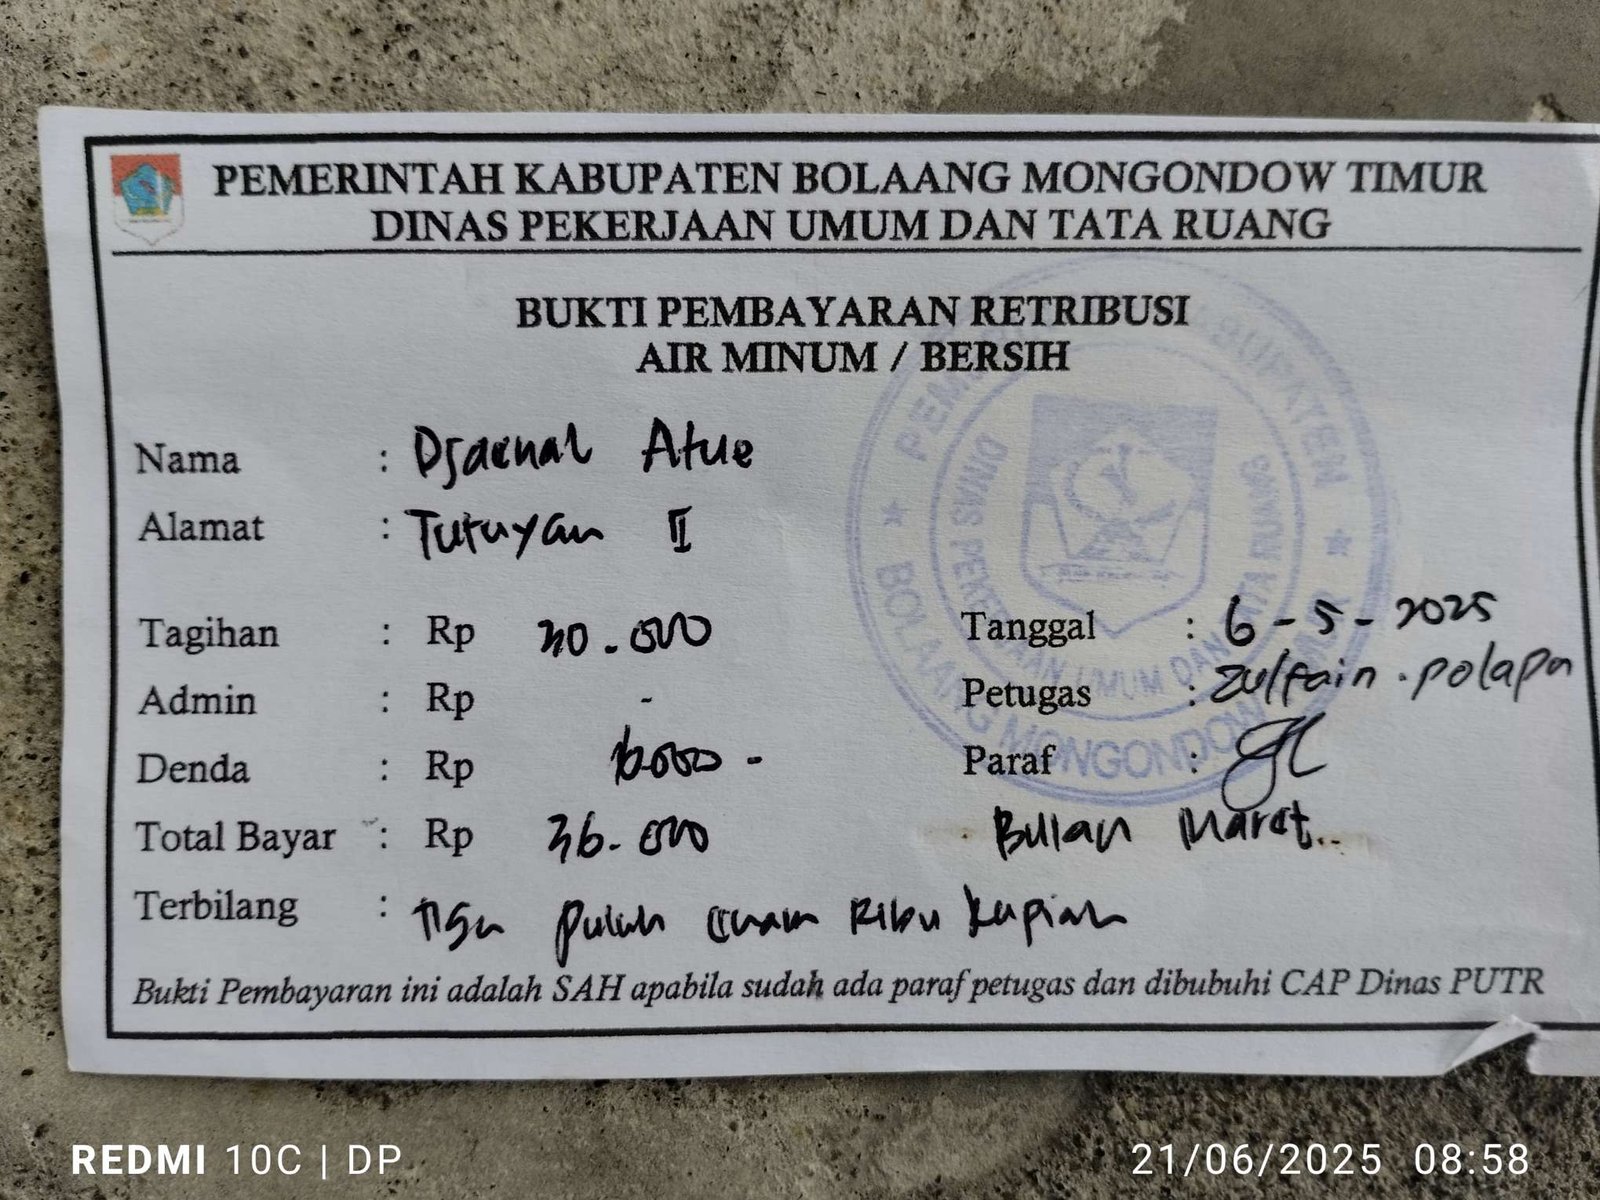 PEMERINTAH KABUPATEN BOLAANG MONGONDOW TIMUR
DINAS PEKERJAAN UMUM DAN TATA RUANG
BUKTI PEMBAYARAN RETRIBUSI
AIR MINUM / BERSIH
Nama : Djaenal Atue
Alamat : Tutuyan II
Tagihan : Rp 30.000
Admin : Rp -
Denda : Rp 6000 -
Total Bayar : Rp 36.000
Terbilang : Tiga puluh enam Ribu Rupiah
Tanggal : 6-5-2025
Petugas : Zulfain.polapa
Paraf :
Bulan Maret..
Bukti Pembayaran ini adalah SAH apabila sudah ada paraf petugas dan dibubuhi CAP Dinas PUTR
BUPATEN
DINAS PEKERJAAN UMUM DAN TATA RUANG
BOLAANG MONGONDOW TIMUR
REDMI 10C | DP
21/06/2025 08:58